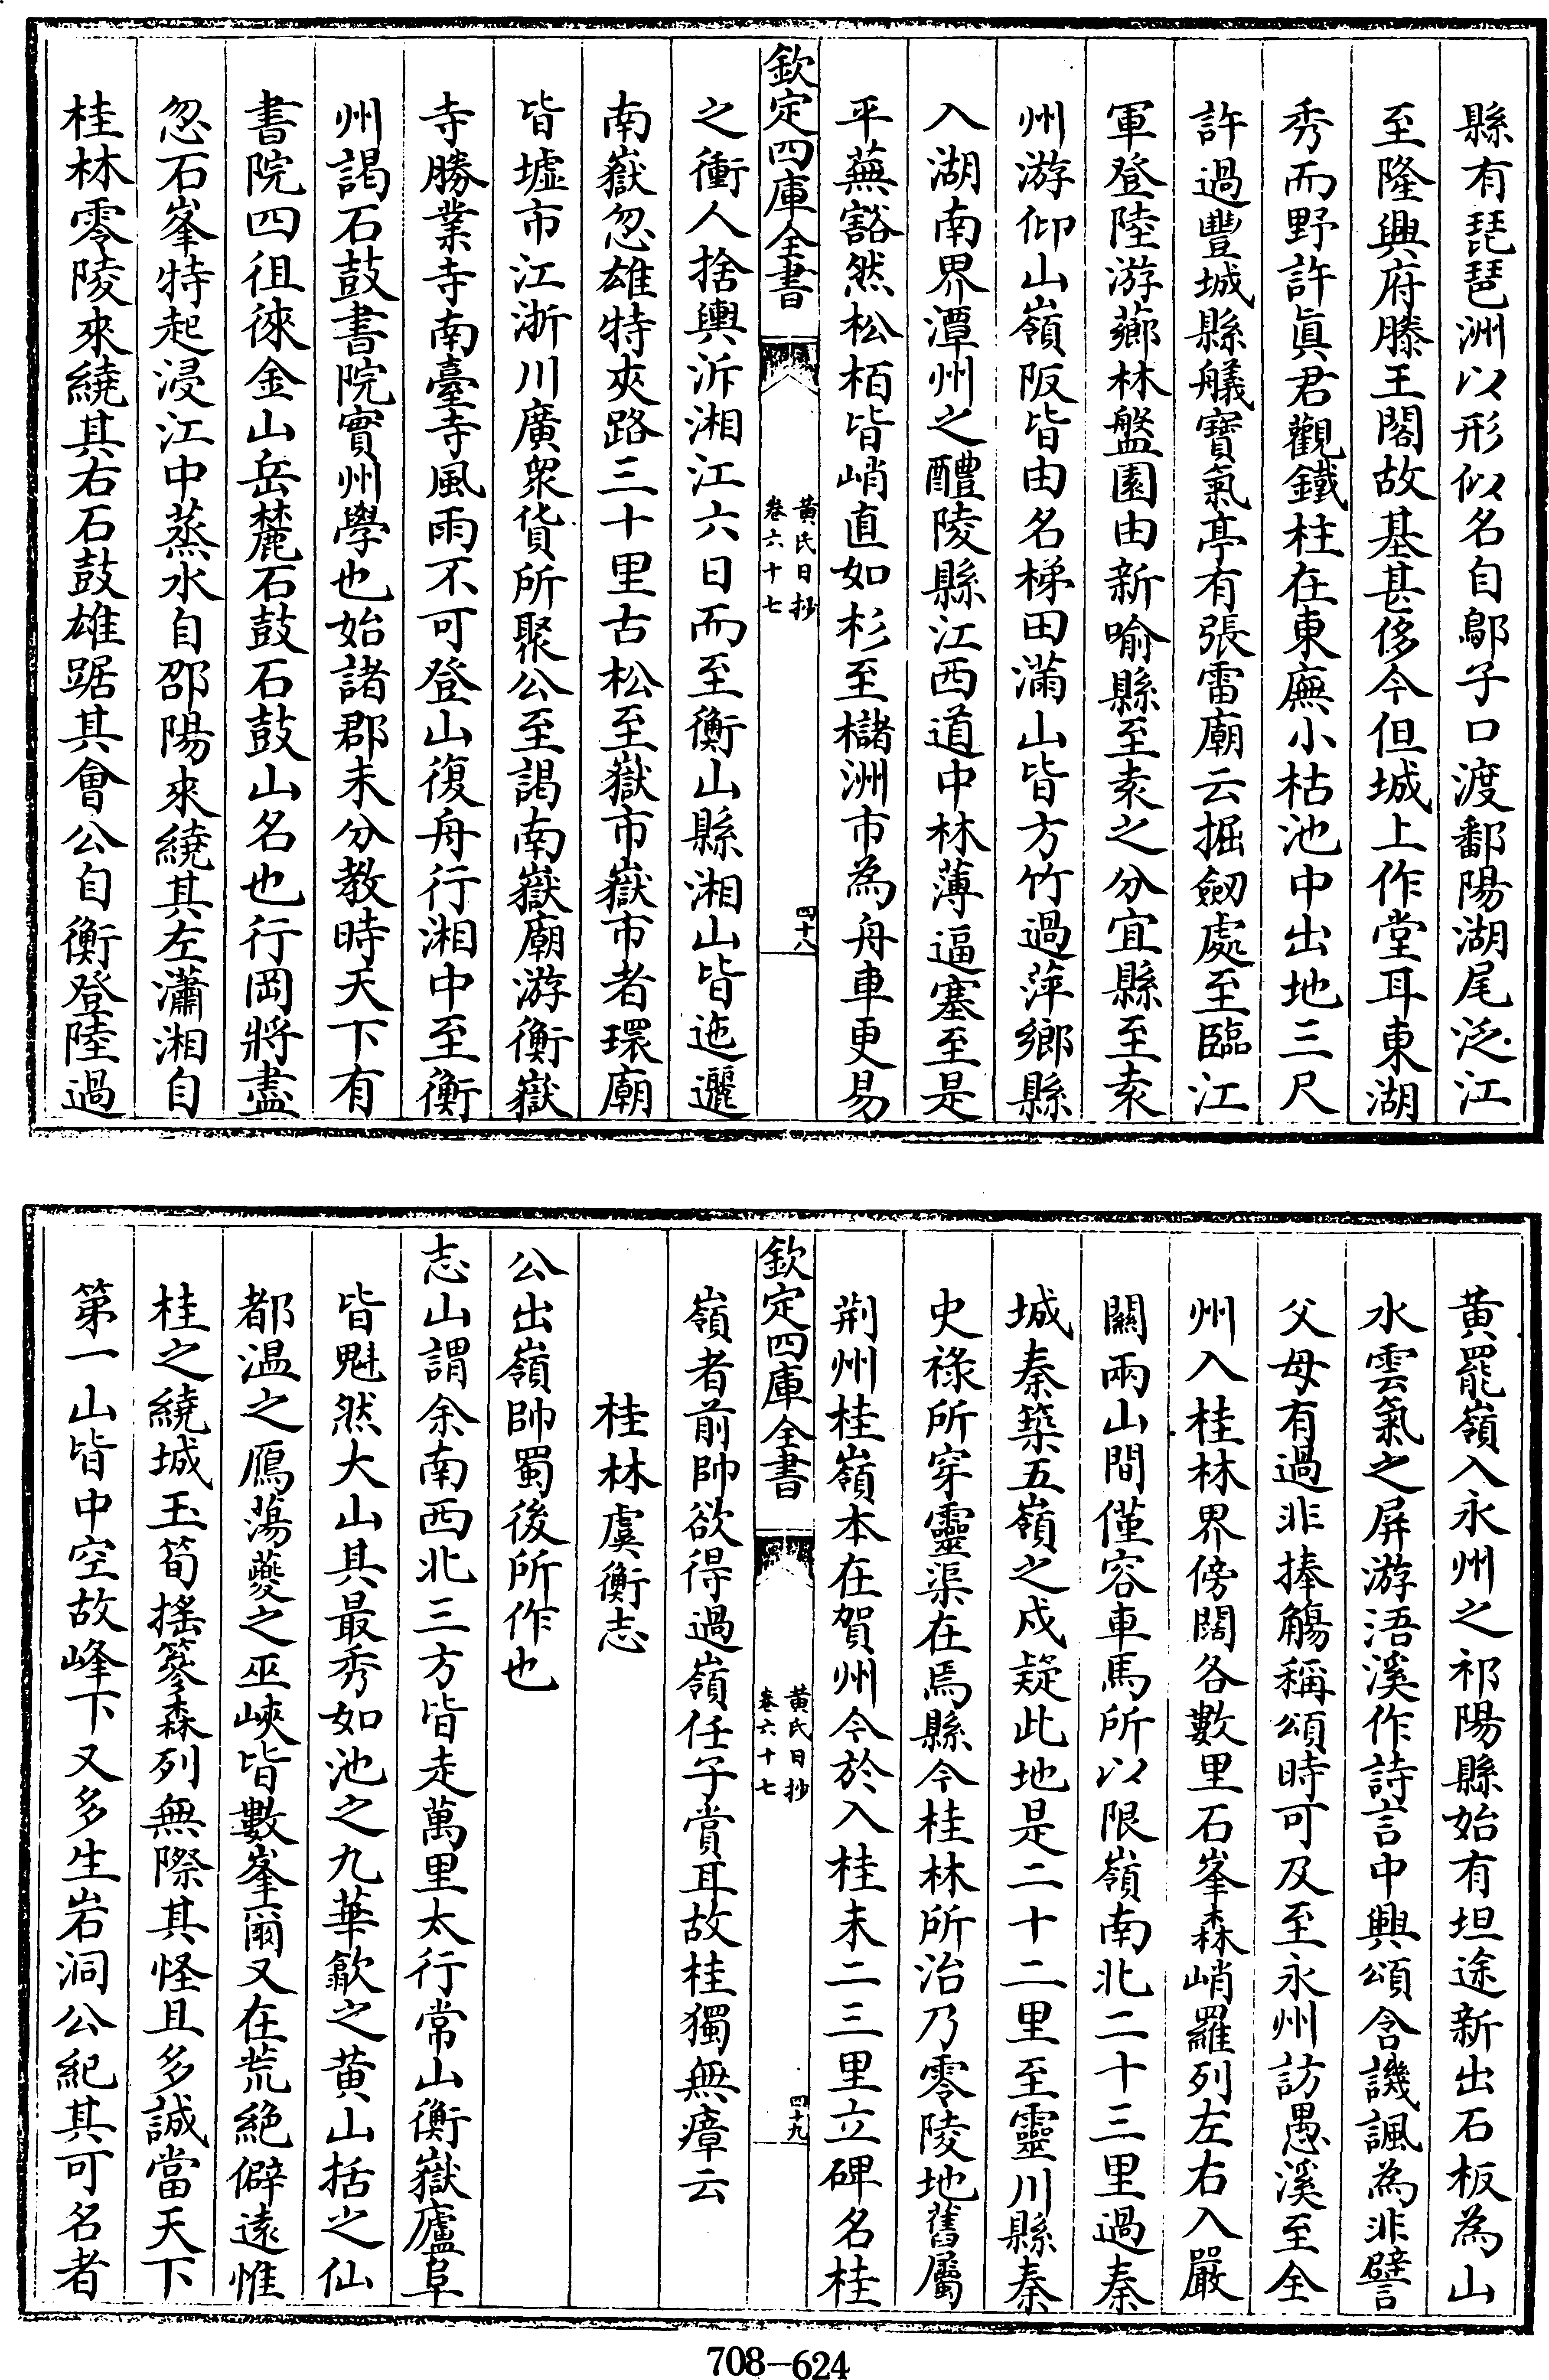 縣有琵琶洲以形似名自鄔子口渡鄱陽湖尾泛江
至隆興府滕王閣故基甚侈今但城上作堂耳東湖
秀而野許眞君觀鐵柱在東廡小枯池中出地三尺
許過豐城縣艤寶氣亭有張雷廟云掘劒處至臨江
軍登陸游薌林盤園由新喻縣至袁之分宜縣至袁
州游仰山嶺阪皆由名梯田滿山皆方竹過萍鄉縣
入湖南界潭州之醴陵縣江西道中林薄逼塞至是
平蕪豁然松栢皆峭直如杉至櫧洲市為舟車更易
欽定四庫全書
黄氏日抄
卷六十七
四十八
之衝人捨輿泝湘江六日而至衡山縣湘山皆迤邐
南嶽忽雄特夾路三十里古松至嶽市嶽市者環廟
皆墟市江浙川廣衆貨所聚公至謁南嶽廟游衡嶽
寺勝業寺南臺寺風雨不可登山復舟行湘中至衡
州謁石鼓書院實州學也始諸郡未分教時天下有
書院四徂徠金山岳麓石鼓石鼓山名也行岡將盡
忽石峯特起浸江中蒸水自邵陽來繞其左瀟湘自
桂林零陵來繞其右石鼓雄踞其會公自衡登陸過
黄罷嶺入永州之祁陽縣始有坦途新出石板為山
水雲氣之屏游浯溪作詩言中興頌含譏諷為非譬
父母有過非捧觴稱頌時可及至永州訪愚溪至全
州入桂林界傍闊各數里石峯森峭羅列左右入嚴
關兩山間僅容車馬所以限嶺南北二十三里過秦
城秦築五嶺之戍疑此地是二十二里至靈川縣秦
史祿所穿靈渠在焉縣令桂林所治乃零陵地舊屬
荆州桂嶺本在賀州今於入桂未二三里立碑名桂
欽定四庫全書
黄氏日抄
卷六十七
四十九
嶺者前帥欲得過嶺任子賞耳故桂獨無瘴云
桂林虞衡志
公出嶺帥蜀後所作也
志山謂余南西北三方皆走萬里太行常山衡嶽廬阜
皆魁然大山其最秀如池之九華歙之黄山括之仙
都温之鴈蕩夔之巫峽皆數峯爾又在荒絶僻遠惟
桂之繞城玉筍搖篸森列無際其怪且多誠當天下
第一山皆中空故峰下又多生岩洞公紀其可名者
708-624